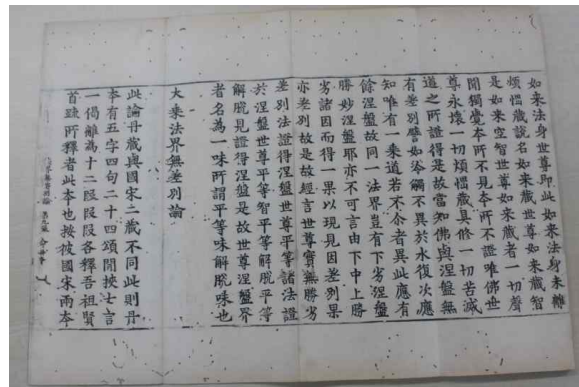 如来法身世尊即此如来法身未離
煩惱蔵說名如来蔵世尊如来蔵智
是如来空智世尊如来蔵者一切聲
聞獨覺本所不見本所不證唯佛世
尊永壞一切煩惱蔵具修一切苦滅
道之所證得是故當知佛與涅盤無
有差別譬如冷觸不異於水復次應
知唯有一乗道若不尒者異此應有
餘涅盤故同一法界豈有下劣涅盤
勝妙涅盤耶亦不可言由下中上勝
劣諸因而得一果以現見因差別果
亦差別故是故經言世尊實無勝劣
差別法證得涅盤世尊平等諸法證
於涅盤世尊平等智平等解脫平等
解脫見證得涅盤是故世尊涅盤界
者名為一味所謂平等味解脫味也
大乗法界無差別論
此論丹蔵與國宋二蔵不同此則丹
本有五字四句二十四頌閒挾七言
一偈離為十二段段段各釋吾祖賢
首䟽所釋者此本也按彼國宋兩本